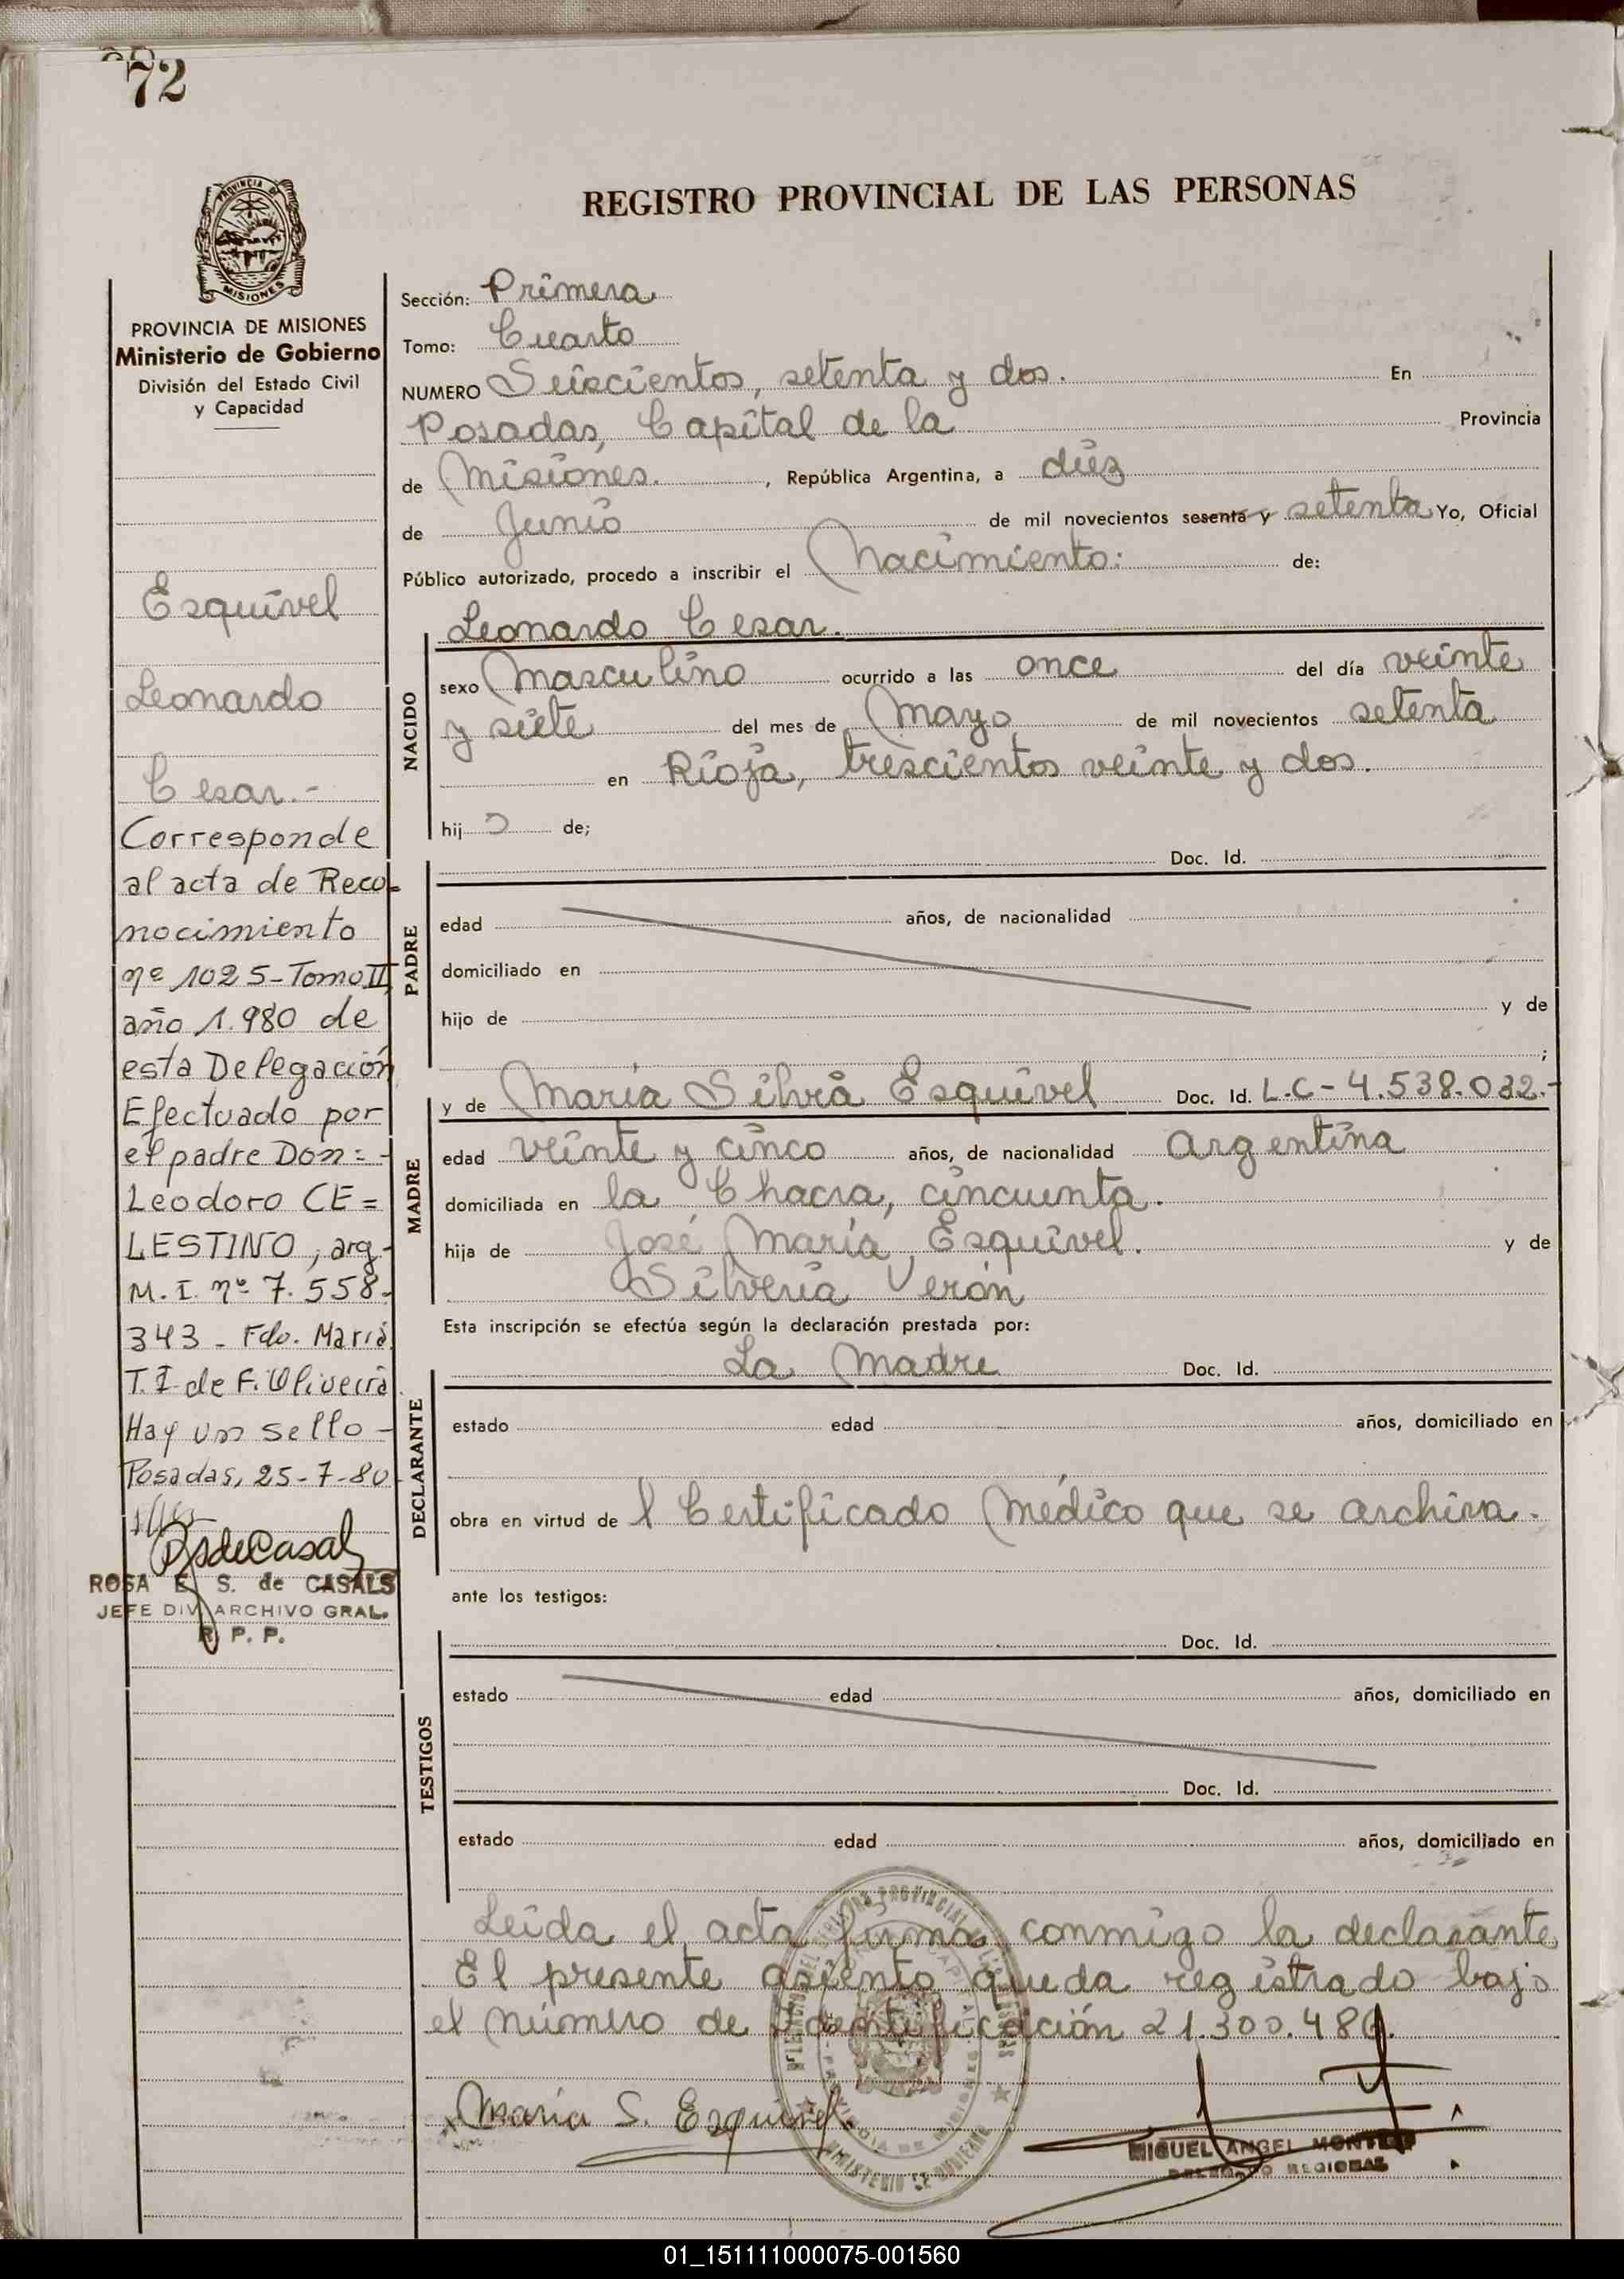 72
PROVINCIA DE
MISIONES
REGISTRO PROVINCIAL DE LAS PERSONAS
PROVINCIA DE MISIONES
Ministerio de Gobierno
División del Estado Civil
y Capacidad
Esquivel
Leonardo
Cesar.-
Corresponde
al acta de Reco-
nocimiento
nº 1025-Tomo II
año 1.980 de
esta Delegación
Efectuado por
el padre Don:-
Leodoro CE=
LESTINO, arg.-
M. I. nº 7.558.-
343 - Fdo. María
T. I. de F. Oliveira
Hay un sello -
Posadas, 25-7-80
ROSA E. S. de CASALS
JEFE DIV. ARCHIVO GRAL.
R. P. P.
Sección: Primera
Tomo: Cuarto
NUMERO Seiscientos, setenta y dos. En
Posadas, Capital de la Provincia
de Misiones. , República Argentina, a diez
de Junio de mil novecientos sesenta y setenta Yo, Oficial
Público autorizado, procedo a inscribir el Nacimiento: de:
Leonardo Cesar.
NACIDO
sexo Masculino ocurrido a las once del día veinte
y siete del mes de Mayo de mil novecientos setenta
en Rioja, trescientos veinte y dos.
hij o de;
Doc. Id.
PADRE
edad años, de nacionalidad
domiciliado en
hijo de y de
;
y de María Silvia Esquivel Doc. Id. L.C-4.538.032.-
MADRE
edad veinte y cinco años, de nacionalidad argentina
domiciliada en la Chacra, cincuenta.
hija de José María Esquivel. y de
Silveria Verón
Esta inscripción se efectúa según la declaración prestada por:
La Madre Doc. Id.
DECLARANTE
estado edad años, domiciliado en
obra en virtud de l Certificado Médico que se archiva.
ante los testigos:
Doc. Id.
TESTIGOS
estado edad años, domiciliado en
Doc. Id.
estado edad años, domiciliado en
Leída el acta firma conmigo la declarante
El presente asiento queda registrado bajo
el número de Identificación 21.300.486.
María S. Esquivel.
MIGUEL ANGEL
DELEGADO REGIONAL
01_151111000075-001560